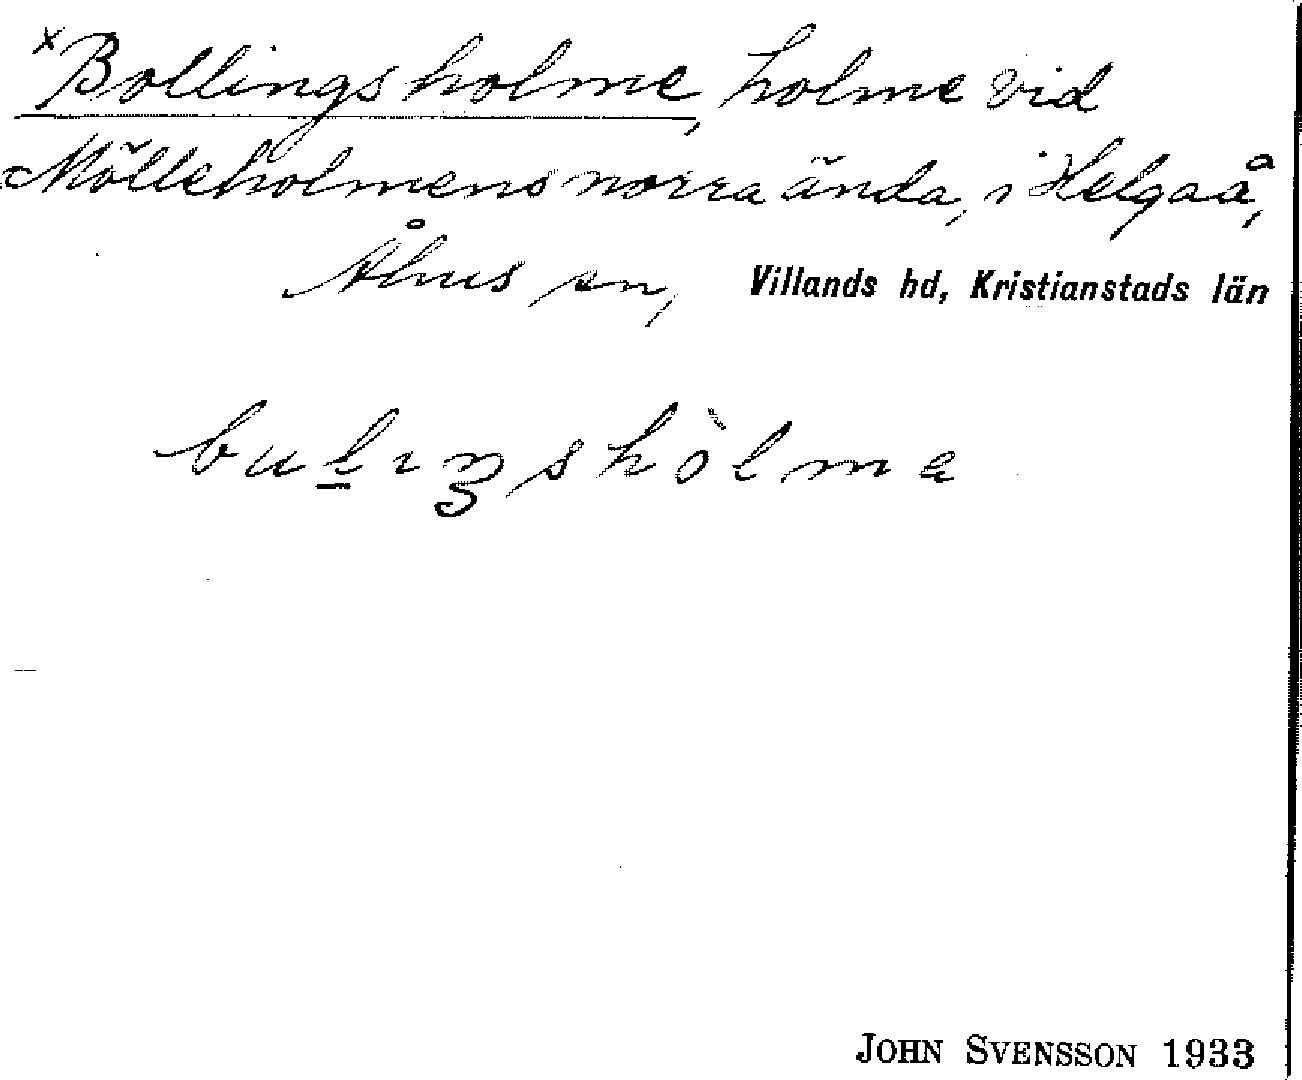 ×Bollingsholme, holme vid
Mölleholmens norra ända, i Helgaå,
Åhus sn, Villands hd, Kristianstads län
bul̲ıŋshòlma
JOHN SVENSSON 1933